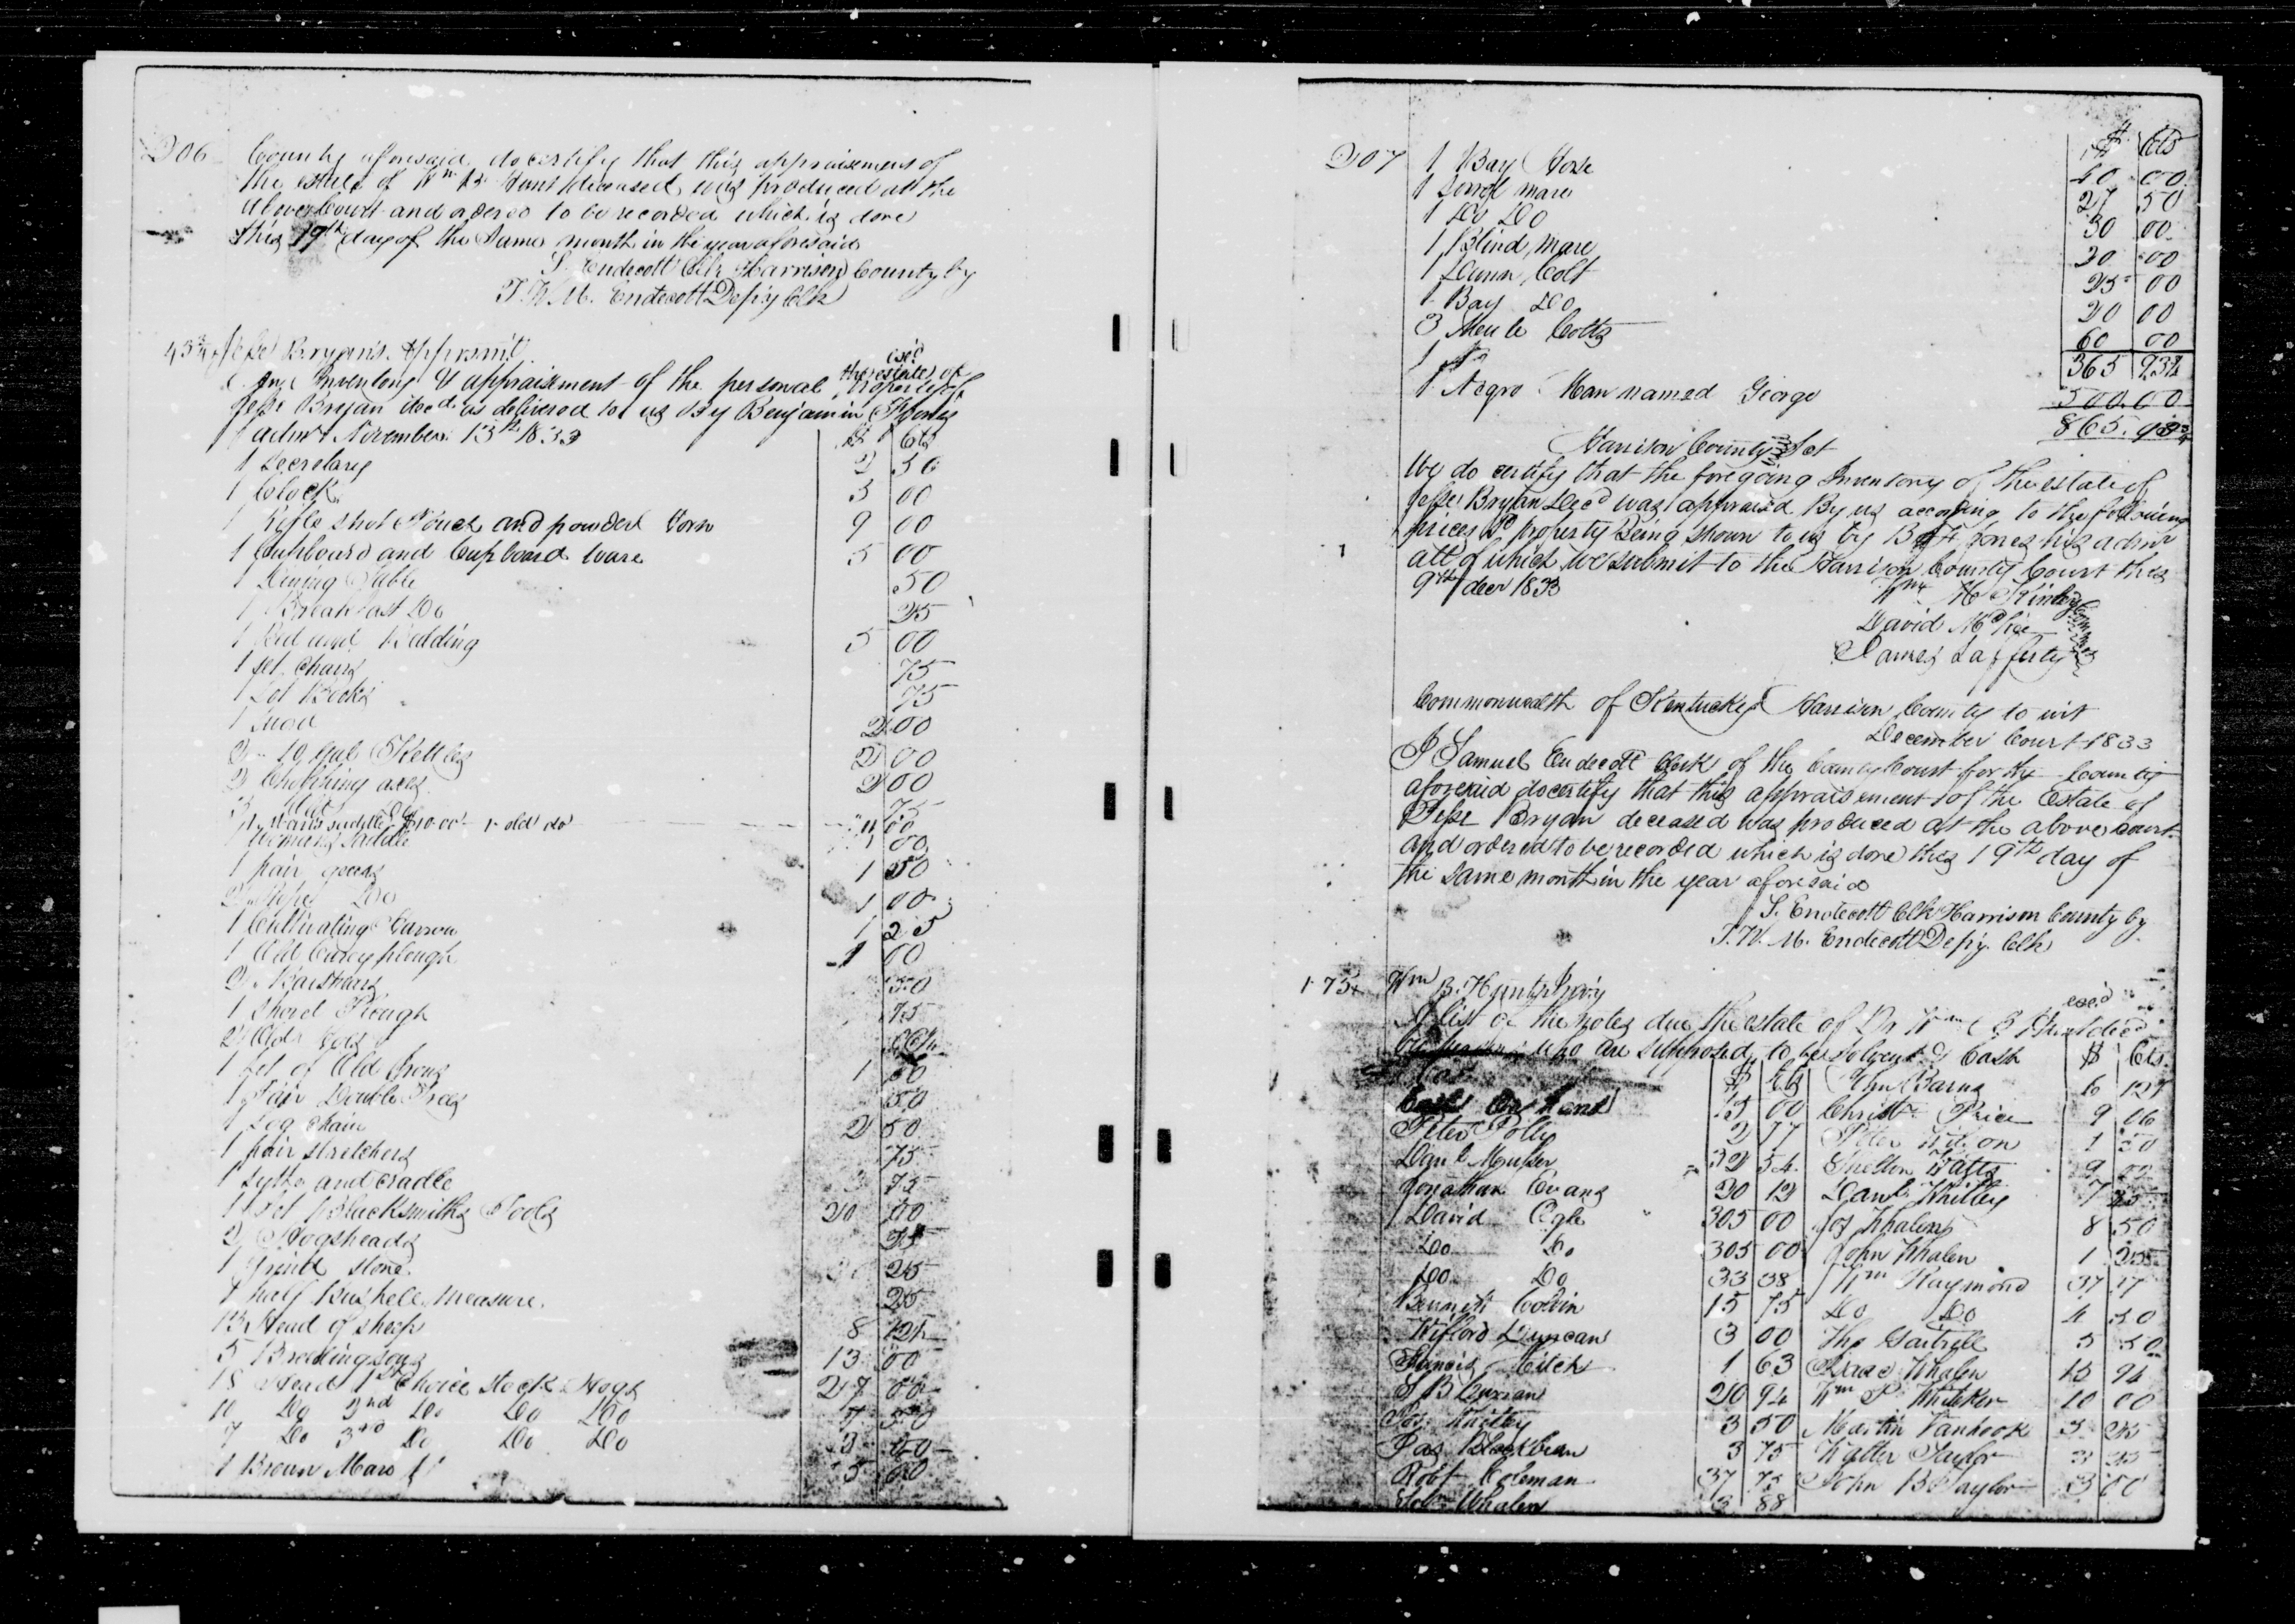 206
County aforesaid do certify that this appraisement of
the estate of Wm B. Hunt deceased was produced at the
above Court and ordered to be recorded which is done
this 19th day of the same month in the year aforesaid
S. Endecott Clk Harrison County by
T. W. M. Endecott Depy Clk
Jesse Bryan's Apprsmt
exd
An Inventory & appraisement of the personal the estate of property of
Jesse Bryan decd. as delivered to us by Benjamin F Jones
admr November 13th 1833 $ Cts
1 Secretary 2 50
1 Clock 3 00
1 Rifle shot Pouch and powder horn 9 00
1 Cupboard and Cupboard ware 5 00
1 Dining Table 50
1 Breakfast Do 25
1 Bed and Bedding 5 00
1 set Chairs 75
1 Lot Books 75
1 2 00
2 10 gal Kettles 2 00
2 Chopping axes 2 00
3 old 75
1 mans saddle $10.00 1 old do 00
1 womans saddle 1 00
1 pair gears 1 50
2 Do 1 00
1 Cultivating Harrow 1 25
1 Old Carey plough 1 00
2 Barshears 50
1 Shovel Plough 75
2 Old
1 set of Old Irons 1 50
1 Pair Double Trees 50
1 Log Chain 2 50
1 pair stretchers 75
1 sythe and cradle 3 75
1 set Blacksmiths Tools 20 00
2 Hogsheads 25
1 grind stone 25
1 half Bushel measure 25
13 Head of sheep 8 12½
5 Breeding sows 13 00
18 Head 1st Choice stock Hogs 27 00
10 Do 2nd Do Do Do 7 50
7 Do 3rd Do Do Do 3 50
1 Brown Mare 5 00
207 $ Cts
1 Bay Horse 40 00
1 Sorrel mare 27 50
1 Do Do 30 00
1 Blind mare 20 00
1 Dunn Colt 25 00
1 Bay Do 20 00
3 Meule Colts 60 00
365 93¾
1 Negro Man named George 500.00
865.93¾
Harrison County Sct
We do certify that the foregoing Inventory of the estate of
Jesse Bryan Decd was appraised By us according to the following
prices sd property Being shown to us by B F Jones his admr
all of which we submit to the Harrison County Court this
9th decr 1833
Wm McKinley
David McKee
James Lafferty
Commonwealth of Kentucky Harrison County to wit
December Court 1833
I Samuel Endecott Clerk of the County Court for the County
aforesaid do certify that this appraisement of the Estate of
Jesse Bryan deceased was produced at the above court
and ordered to be recorded which is done this 19th day of
the same month in the year aforesaid
S. Endecott Clk Harrison County by
T. W. M. Endecott Depy. Clk
Wm B. Hunts Invy
exd
A list of the notes due the estate of Dr Wm B Hunt decd
who are supposed to be solvent & Cash $ Cts
$ Cts John Barns 6 12½
Cash On hand 15 00 Christr Price 9 06
Peter Polly 2 17 Peter Wilson 1 50
Danl Musser 32 54 Shelton Watts 9 00
Jonathan Evans 20 12 Danl Whitley 7 25
David Ogle 305 00 Jos Whalen 8 50
Do Do 305 00 John Whalen 1 25
Do Do 33 38 Wm Raymond 37 17
Bennett Colvin 15 75 Do Do 4 50
Wilford Duncan 3 00 Tho Gartrell 5 50
Francis Hitch 1 63 Isaac Whalen 15 94
S B Curran 20 94 Wm P Whitaker 10 00
Jos Whitley 3 50 Martin Vanhook 5 25
Jas Blackburn 3 75 Walter Taylor 3 25
Robt Coleman 37 75 John B Taylor 3 00
Whalen 3 88